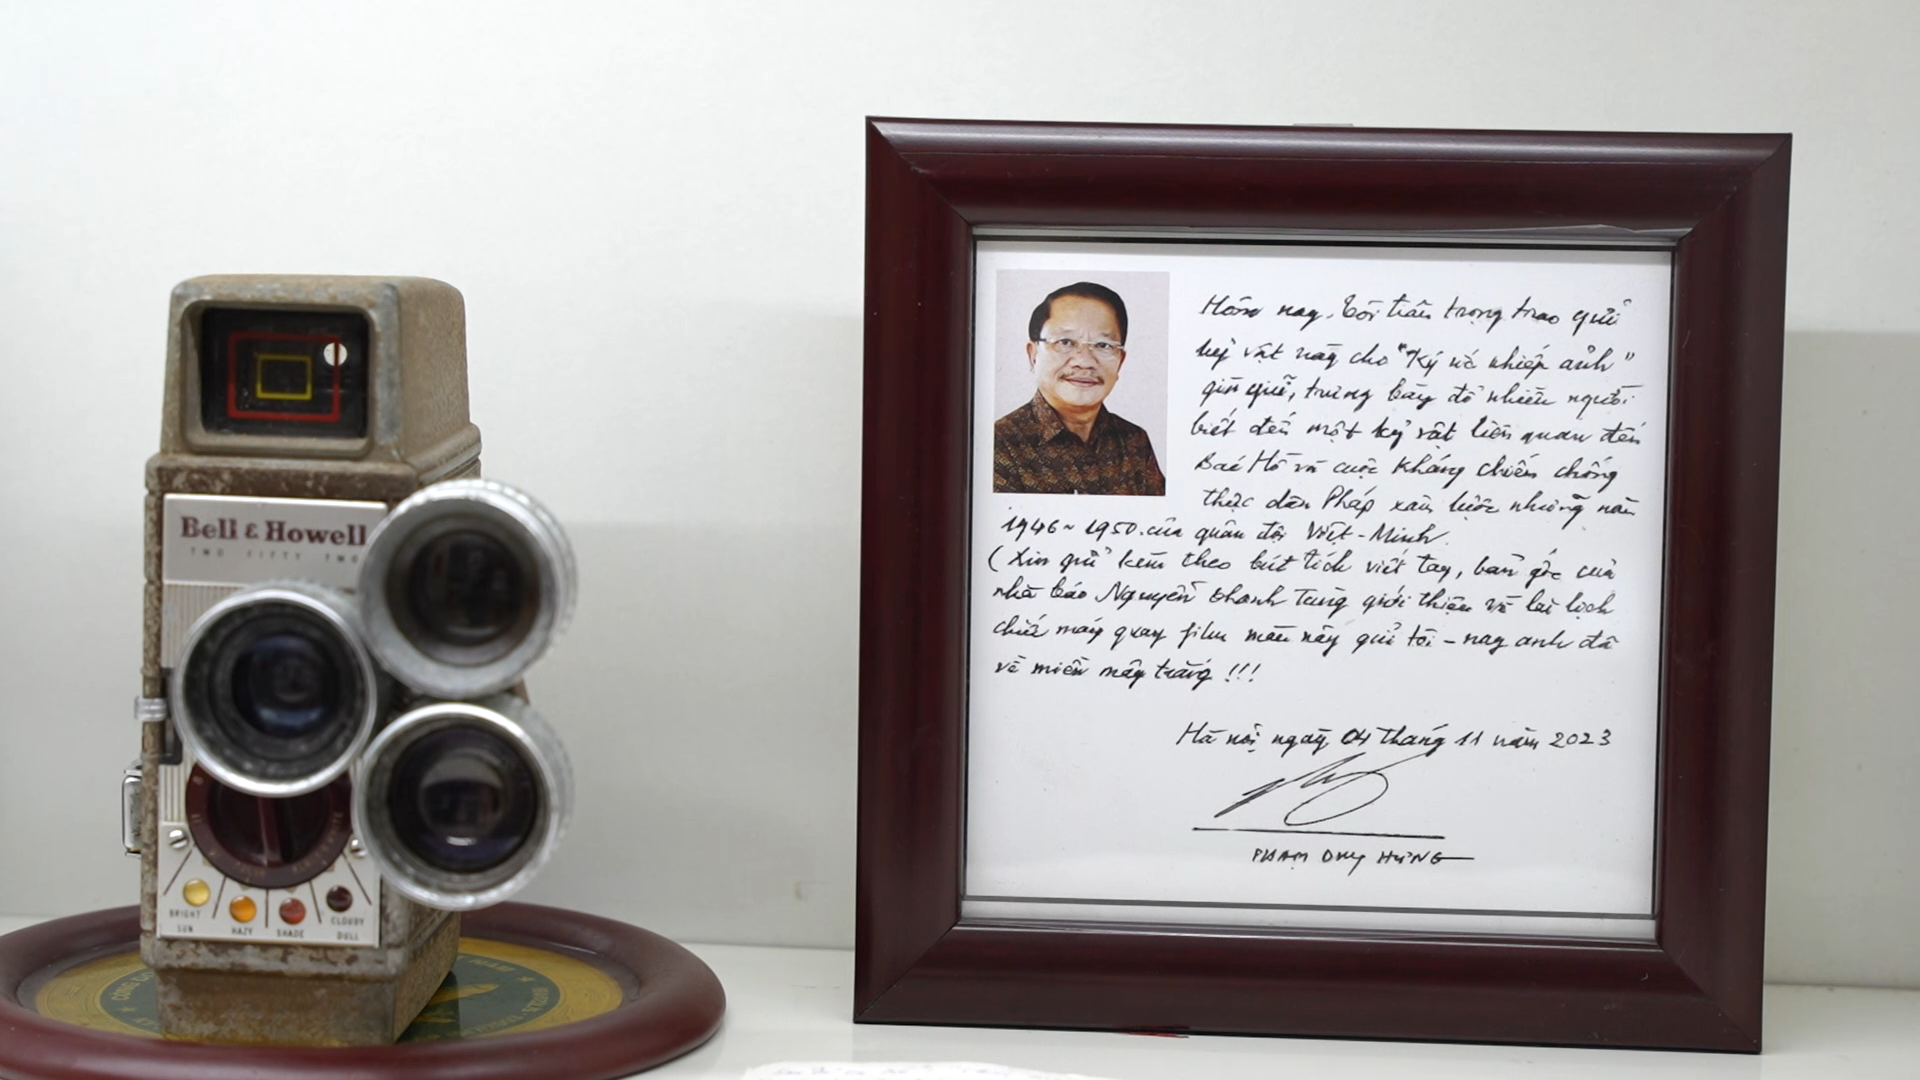 Bell & Howell
TWO FIFTY TWO
BRIGHT SUN
HAZY
SHADE
CLOUDY DULL
Hôm nay, tôi trân trọng trao gửi
kỷ vật này cho "Ký ức nhiếp ảnh"
gìn giữ, trưng bày để nhiều người
biết đến một kỷ vật liên quan đến
Bác Hồ và cuộc kháng chiến chống
thực dân Pháp xâm lược những năm
1946~1950 của quân đội Việt-Minh.
(Xin gửi kèm theo bút tích viết tay, bản gốc của
nhà báo Nguyễn Thanh Tùng giới thiệu về lai lịch
chiếc máy quay film màu này gửi tôi - nay anh đã
về miền mây trắng !!!
Hà nội, ngày 04 tháng 11 năm 2023
PHẠM DUY HƯNG